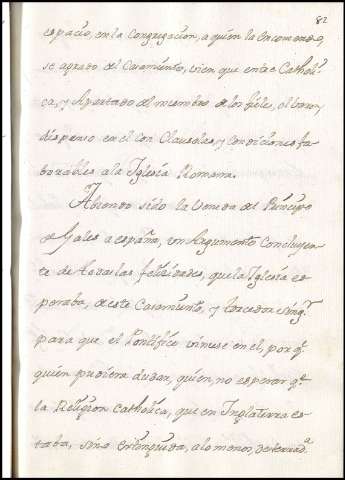 82
espacio, en la Congregacion, a quien la Encomendo,
se agrado del Casamiento, vien que entre Catholi
ca, y Apartado del miembro de los fieles, el
dispenso en el con Clausulas, y condiciones fa
borables a la Iglesia Romana.
Abiendo sido la Venida del Principe
de Gales a españa, Un Argumento Concluyen
te de todas las felizidades, que la Iglesia es
peraba, de este Casamiento, y torcedor
para que el Pontifice viniese en el, por q.
quien pudiera dudar, quien, no esperar q.e
la Religion Catholica, que en Inglaterra es
taba, sino extinguida, a lo menos, desterrad.a